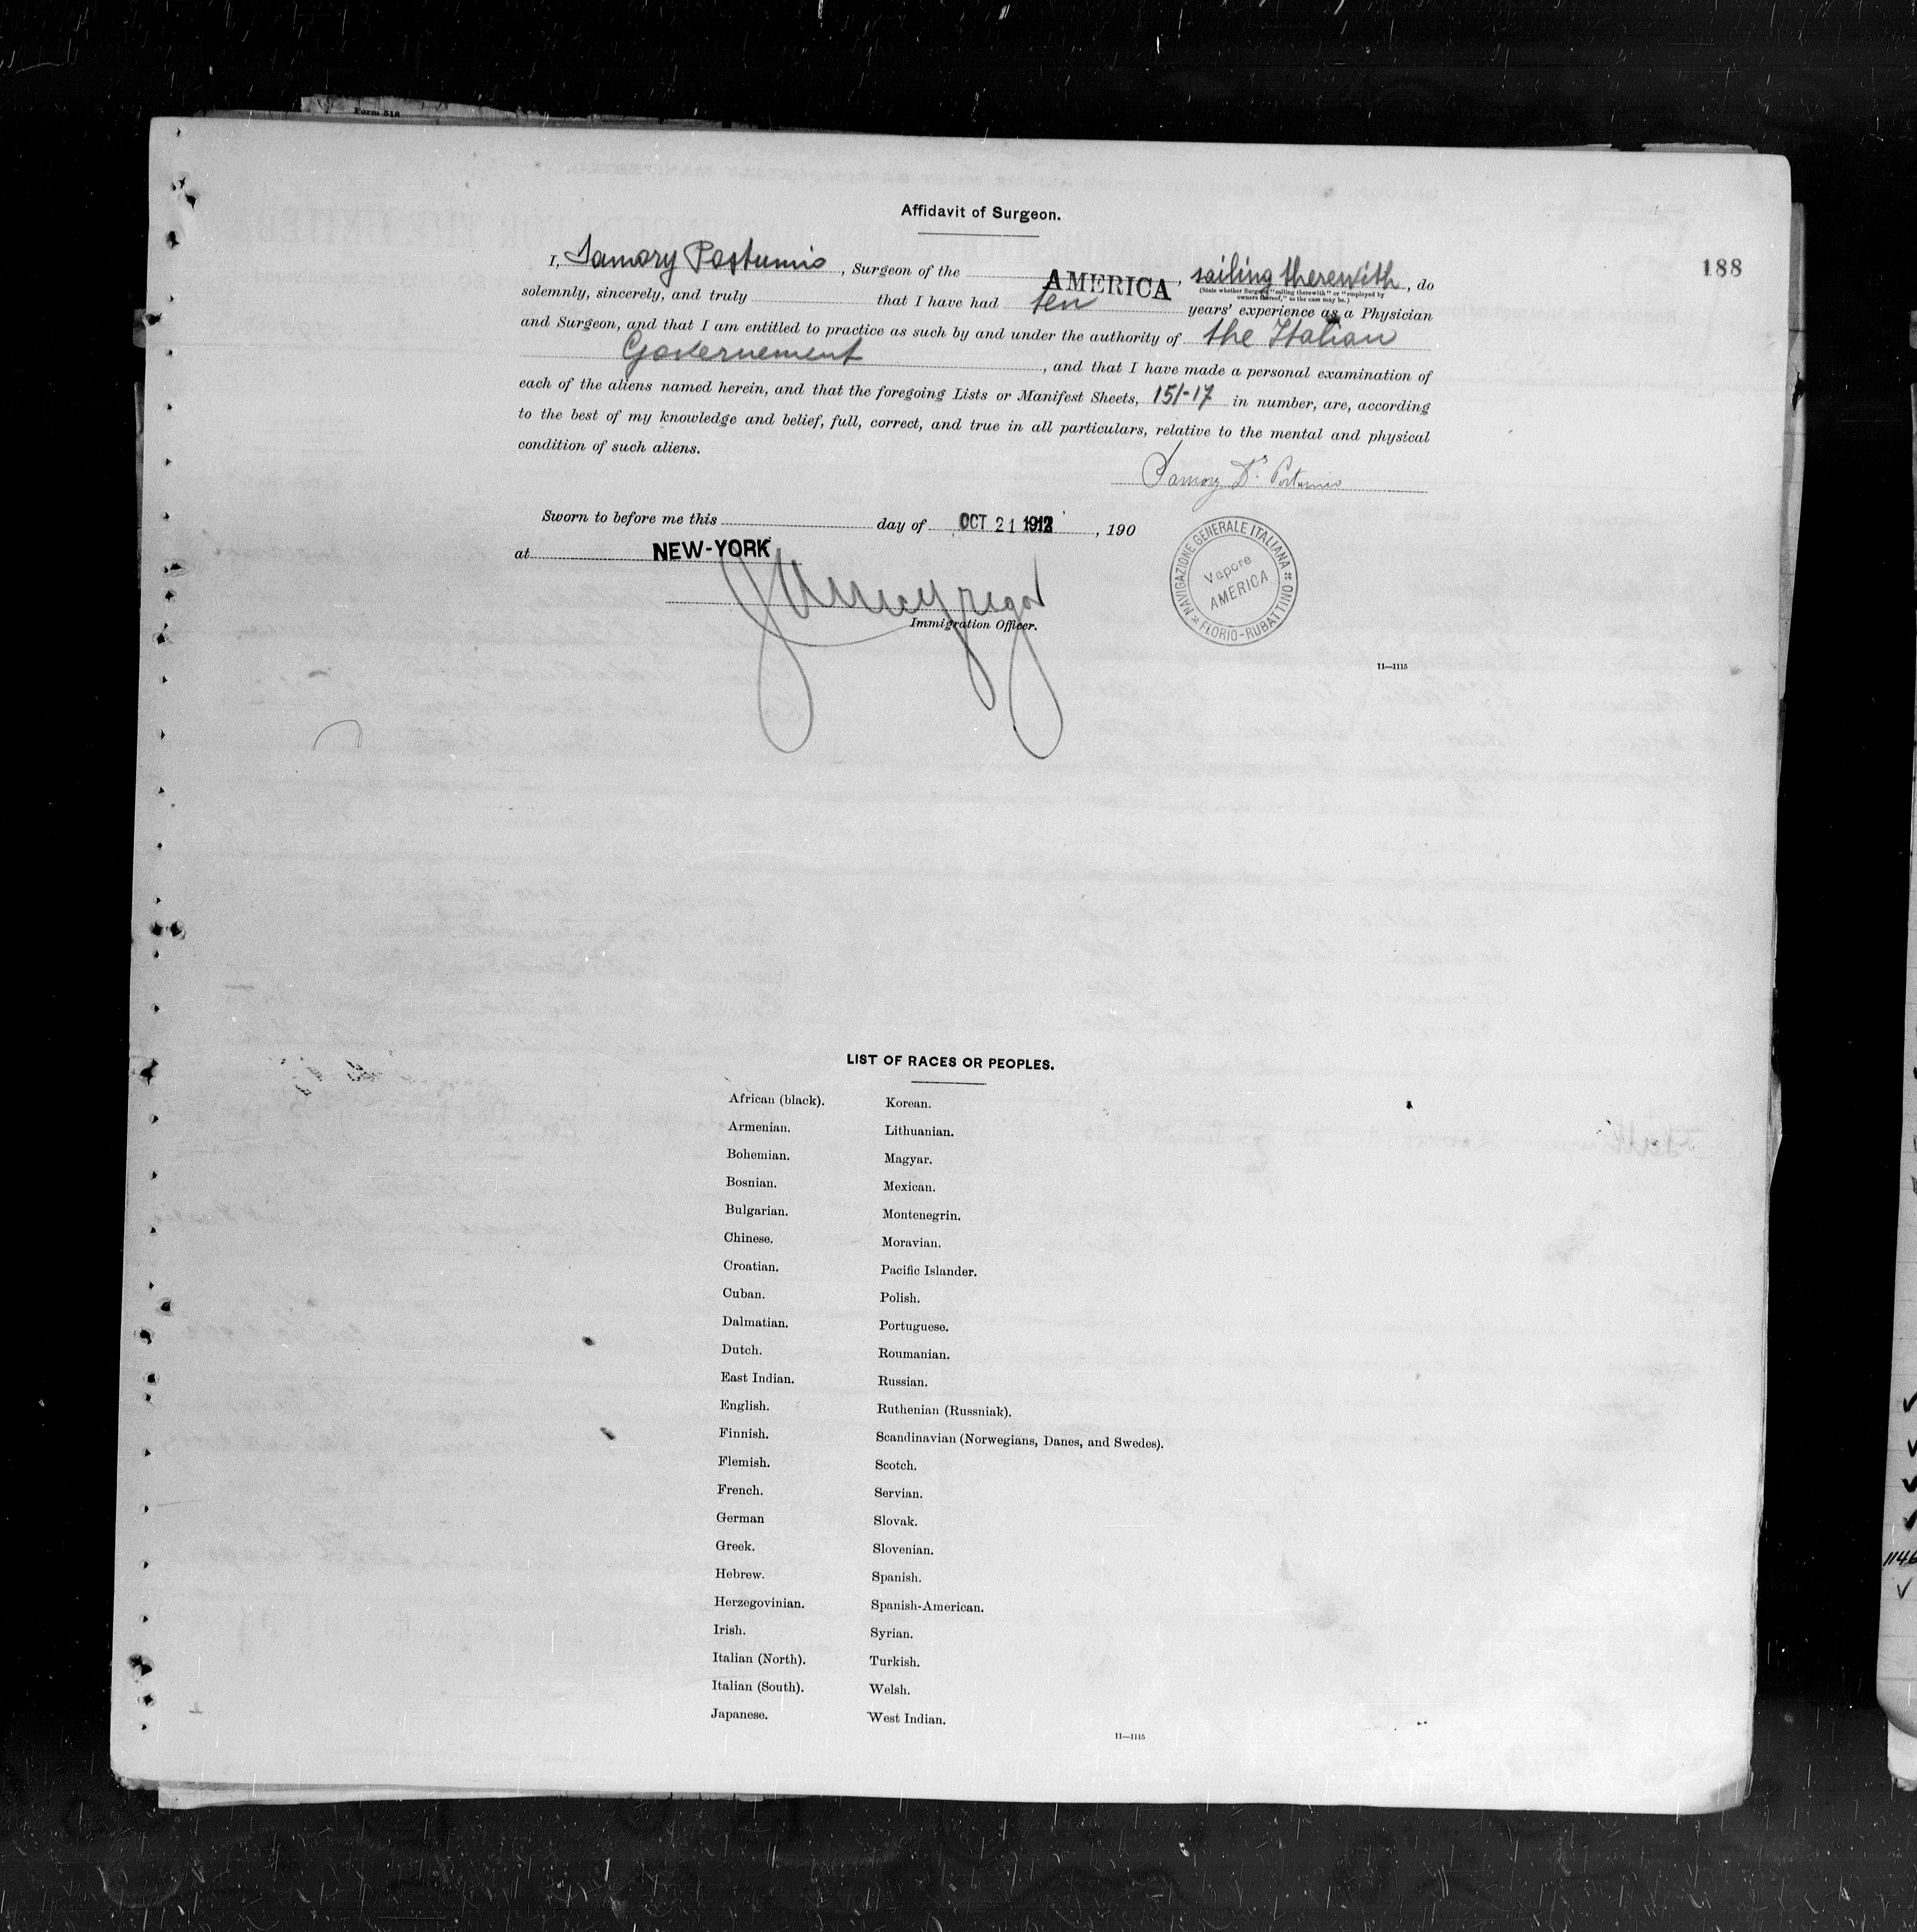 Form 518
Affidavit of Surgeon.
188
I, Samory Postumio, Surgeon of the AMERICA, sailing therewith, do
(State whether Surgeon "sailing therewith" or "employed by
owners thereof," as the case may be.)
solemnly, sincerely, and truly that I have had ten years' experience as a Physician
and Surgeon, and that I am entitled to practice as such by and under the authority of the Italian
Governement, and that I have made a personal examination of
each of the aliens named herein, and that the foregoing Lists or Manifest Sheets, 151-17 in number, are, according
to the best of my knowledge and belief, full, correct, and true in all particulars, relative to the mental and physical
condition of such aliens.
Samory Dr. Postumio
Sworn to before me this day of OCT 21 1912, 190
at NEW-YORK
Immigration Officer.
NAVIGAZIONE GENERALE ITALIANA
FLORIO-RUBATTINO
Vapore
AMERICA
11—1115
LIST OF RACES OR PEOPLES.
African (black).
Armenian.
Bohemian.
Bosnian.
Bulgarian.
Chinese.
Croatian.
Cuban.
Dalmatian.
Dutch.
East Indian.
English.
Finnish.
Flemish.
French.
German
Greek.
Hebrew.
Herzegovinian.
Irish.
Italian (North).
Italian (South).
Japanese.
Korean.
Lithuanian.
Magyar.
Mexican.
Montenegrin.
Moravian.
Pacific Islander.
Polish.
Portuguese.
Roumanian.
Russian.
Ruthenian (Russniak).
Scandinavian (Norwegians, Danes, and Swedes).
Scotch.
Servian.
Slovak.
Slovenian.
Spanish.
Spanish-American.
Syrian.
Turkish.
Welsh.
West Indian.
11—1115
1146